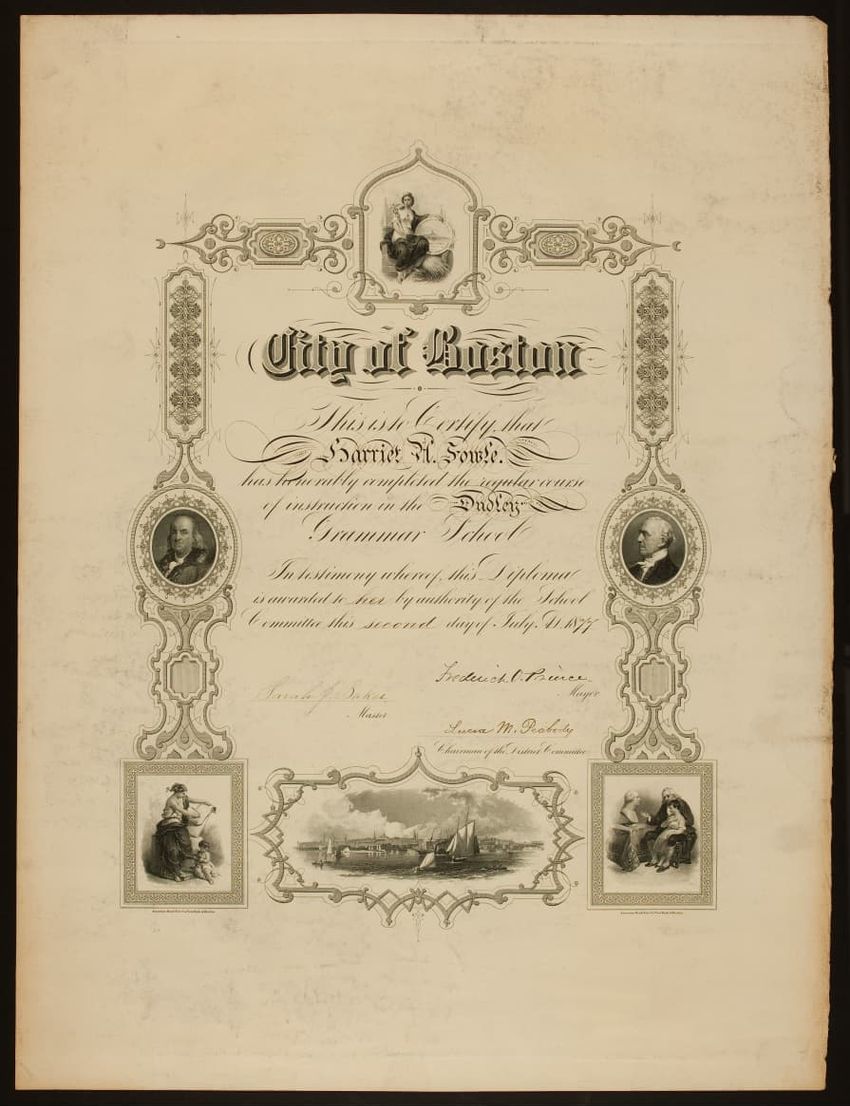 City of Boston
This is to Certify, that
Harriet A. Fowle.
has honorably completed the regular course
of instruction in the Dudley
Grammar School
In testimony whereof, this Diploma
is awarded to her by authority of the School
Committee this second day of July, A.D. 1877
Frederick O. Prince
Mayor
Sarah J. Baker
Master
Lucia M. Peabody
Chairman of the District Committee